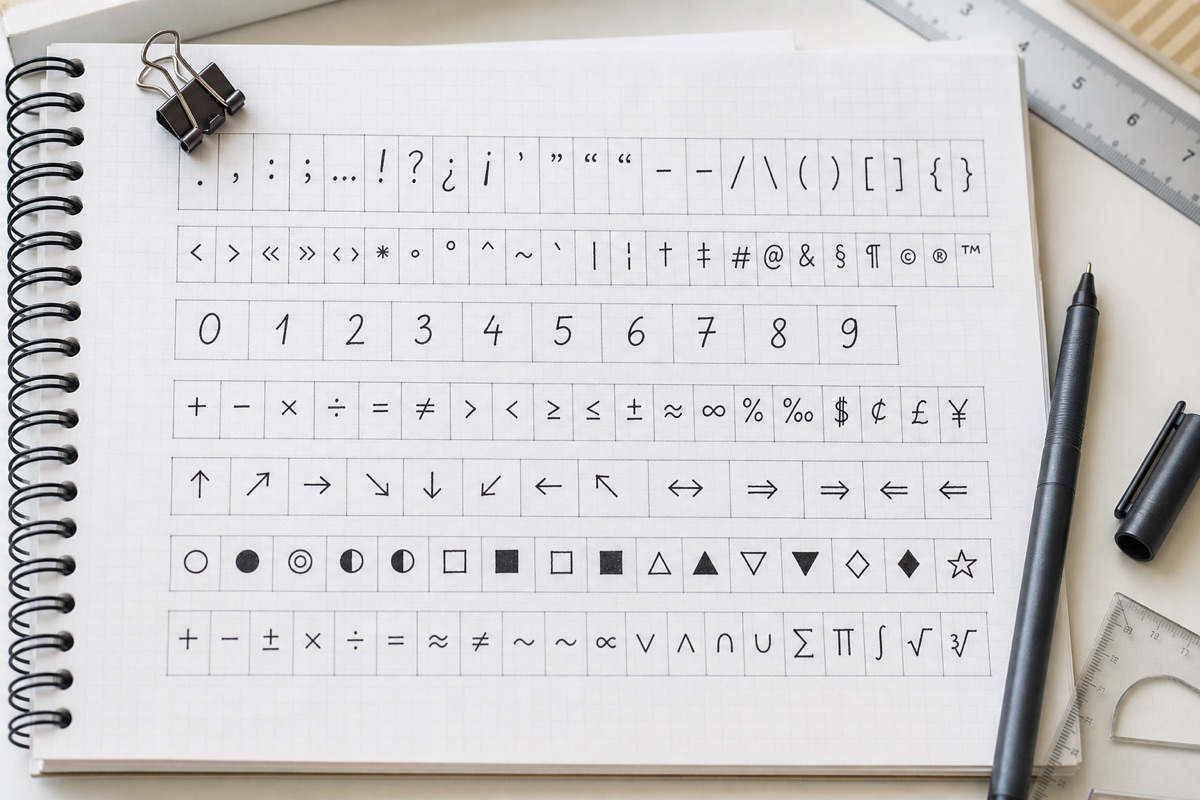 . , : ; … ! ? ¿ ¡ ’ ” “ “ – – / \ ( ) [ ] { }
< > « » ‹ › * ∘ ° ^ ~ ` | ¦ † ‡ # @ & § ¶ © ® ™
0 1 2 3 4 5 6 7 8 9
+ − × ÷ = ≠ > < ≥ ≤ ± ≈ ∞ % ‰ $ ¢ £ ¥
↑ ↗ → ↘ ↓ ↙ ← ↖ ↔ ⇒ ⇒ ⇐ ⇐
○ ● ◎ ◐ ◐ □ ■ □ ■ △ ▲ ▽ ▼ ◇ ◆ ☆
+ − ± × ÷ = ≈ ≠ ~ ~ ∝ ∨ ∧ ∩ ∪ ∑ ∏ ∫ √ ∛
3
4
5
6
7